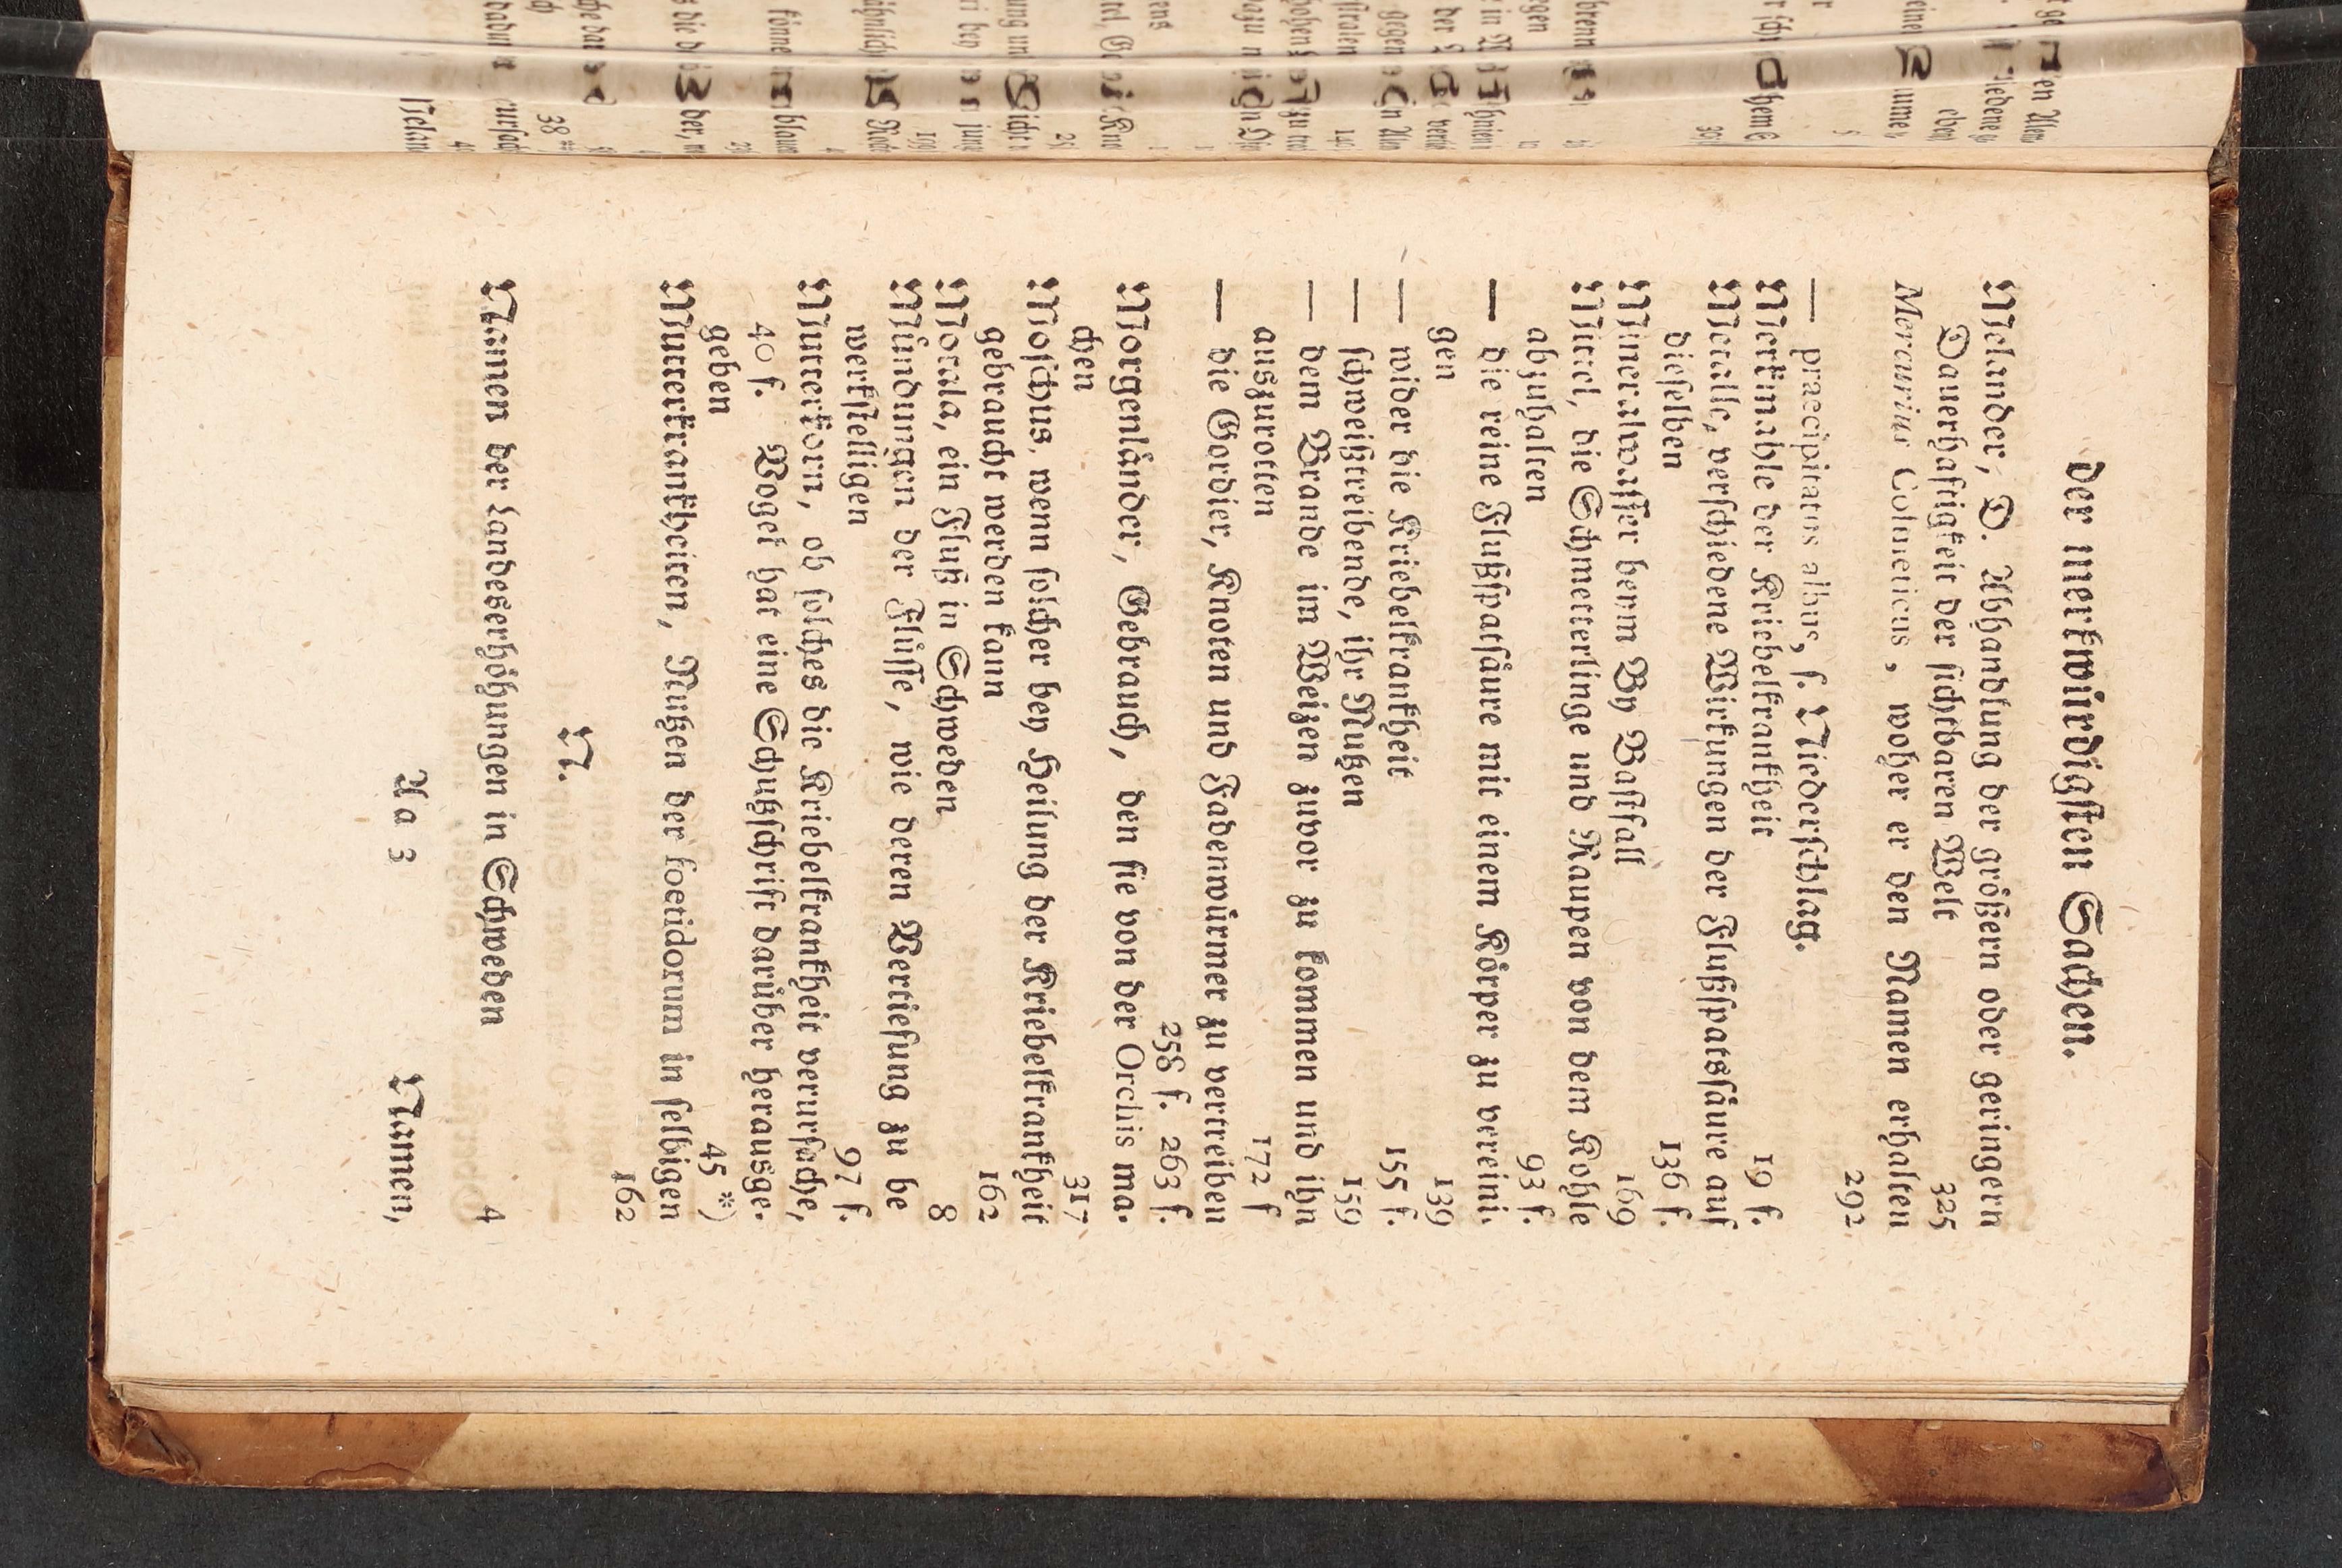 der merkwürdigsten Sachen.
Melander, D. Abhandlung der größern oder geringern
Dauerhaftigkeit der sichtbaren Welt 325
Mercurius Cosmeticus, woher er den Namen erhalten
292
— praecipitatus albus, s. Niederschlag.
Merkmahle der Kriebelkrankheit 19 f.
Metalle, verschiedene Wirkungen der Flußspatssäure auf
dieselben 136 f.
Mineralwasser beym By Wastfall 169
Mittel, die Schmetterlinge und Raupen von dem Kohle
abzuhalten 93 f.
— die reine Flußspatsäure mit einem Körper zu vereini-
gen 139
— wider die Kriebelkrankheit 155 f.
— schweißtreibende, ihr Nutzen 159
— dem Brande im Weizen zuvor zu kommen und ihn
auszurotten 172 f
— die Gordier, Knoten und Fadenwürmer zu vertreiben
258 f. 263 f.
Morgenländer, Gebrauch, den sie von der Orchis ma-
chen 317
Moschus, wenn solcher bey Heilung der Kriebelkrankheit
gebraucht werden kann 162
Motala, ein Fluß in Schweden 8
Mündungen der Flüsse, wie deren Vertiefung zu be
werkstelligen 97 f.
Mutterkorn, ob solches die Kriebelkrankheit verursache,
40 f. Vogel hat eine Schutzschrift darüber herausge-
geben 45 *)
Mutterkrankheiten, Nutzen der foetidorum in selbigen
162
N.
Namen der Landeserhöhungen in Schweden 4
A a 3
Namen,